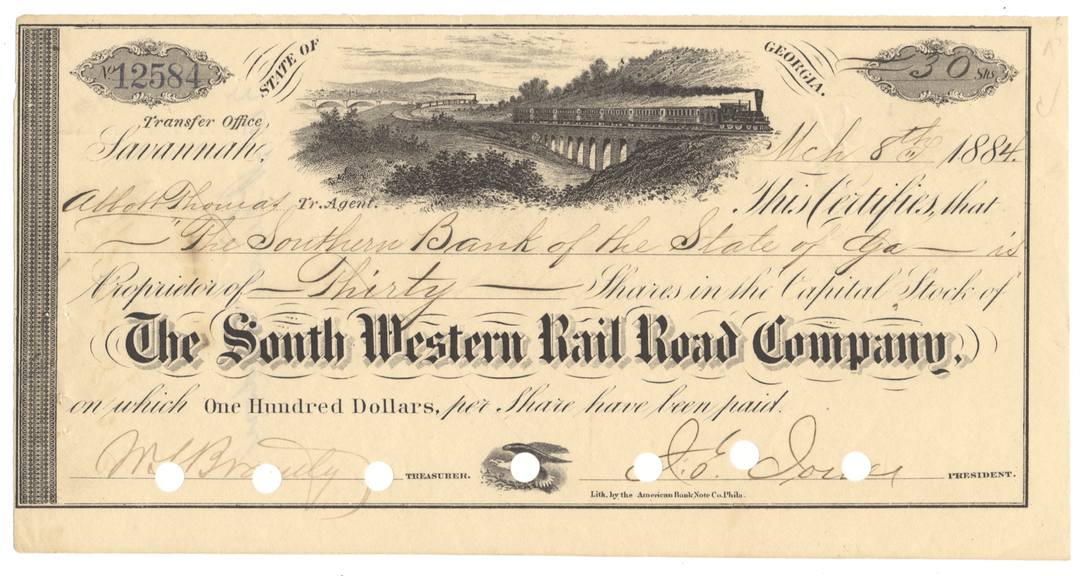 No 12584
STATE OF
GEORGIA.
30 Shs
Transfer Office,
Savannah,
Mch 8th 1884.
Abbott Thomas Tr. Agent.
This Certifies, that
"The Southern Bank of the State of Ga is
Proprietor of Thirty Shares in the Capital Stock of
The South Western Rail Road Company,
on which One Hundred Dollars, per Share have been paid.
TREASURER.
J. E. Jones PRESIDENT.
Lith. by the American Bank Note Co. Phila.